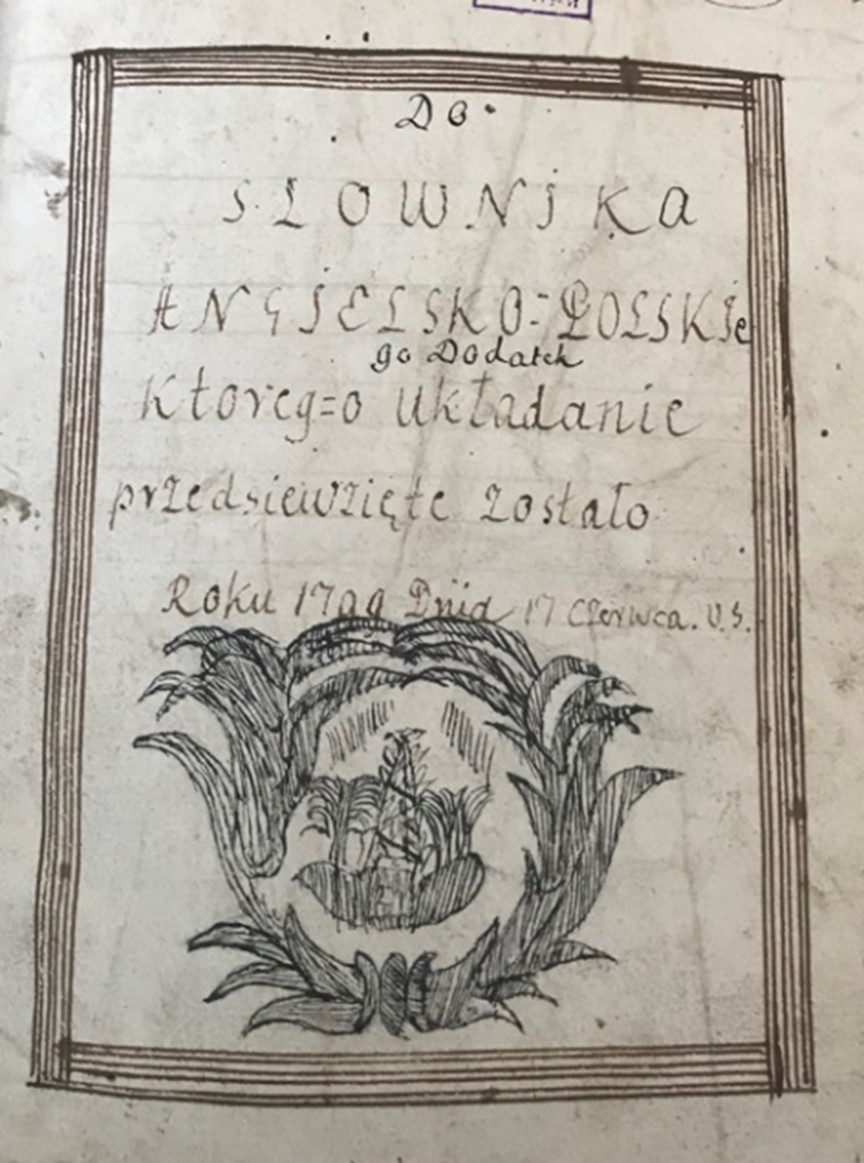 Do
SŁOWNiKa
ANGiELSKO-POLSKie
go Dodatek
Ktoreg=o układanie
przedsiewzięte zostało
Roku 1799 Dnia 17 Czerwca. V.S.